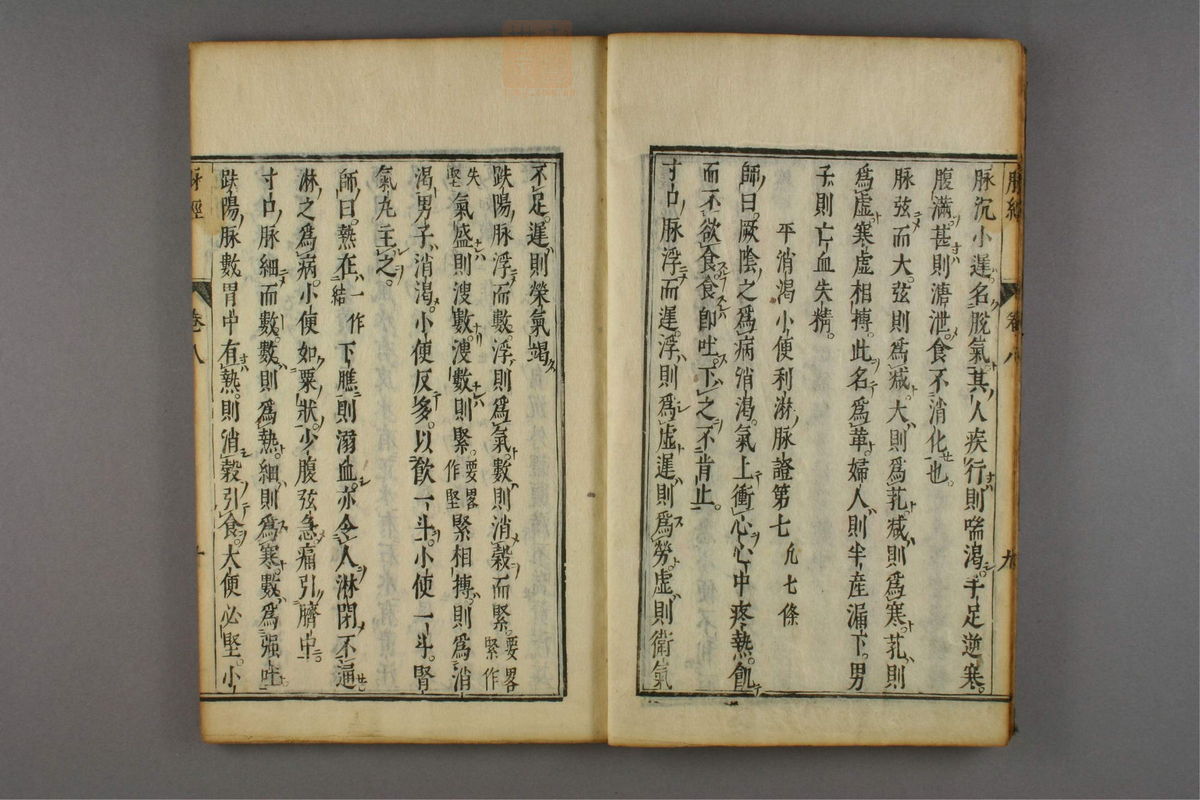 脉經 卷八 九
脉沉小遲名脫氣其人疾行則喘渴手足逆寒
腹滿甚則溏泄食不消化也
脉弦而大弦則爲減大則爲芤減則爲寒芤則
爲虛寒虛相搏此名爲革婦人則半產漏下男
子則亡血失精
平消渴小便利淋脉證第七 凢七條
師曰厥陰之爲病消渴氣上衝心心中疼熱飢
而不欲食食即吐下之不肯止
寸口脉浮而遲浮則爲虛遲則爲勞虛則衛氣
不足遲則榮氣竭
趺陽脉浮而數浮則爲氣數則消穀而緊要畧緊作
堅失氣盛則溲數溲數則緊要畧作堅緊相搏則爲消
渴男子消渴小便反多以飮一斗小便一斗腎
氣丸主之
師曰熱在一作結下膲則溺血亦令人淋閉不通
淋之爲病小便如粟狀少腹弦急痛引臍中
寸口脉細而數數則爲熱細則爲寒數爲强吐
趺陽脉數胃中有熱則消穀引食大便必堅小
脉經 卷八 十